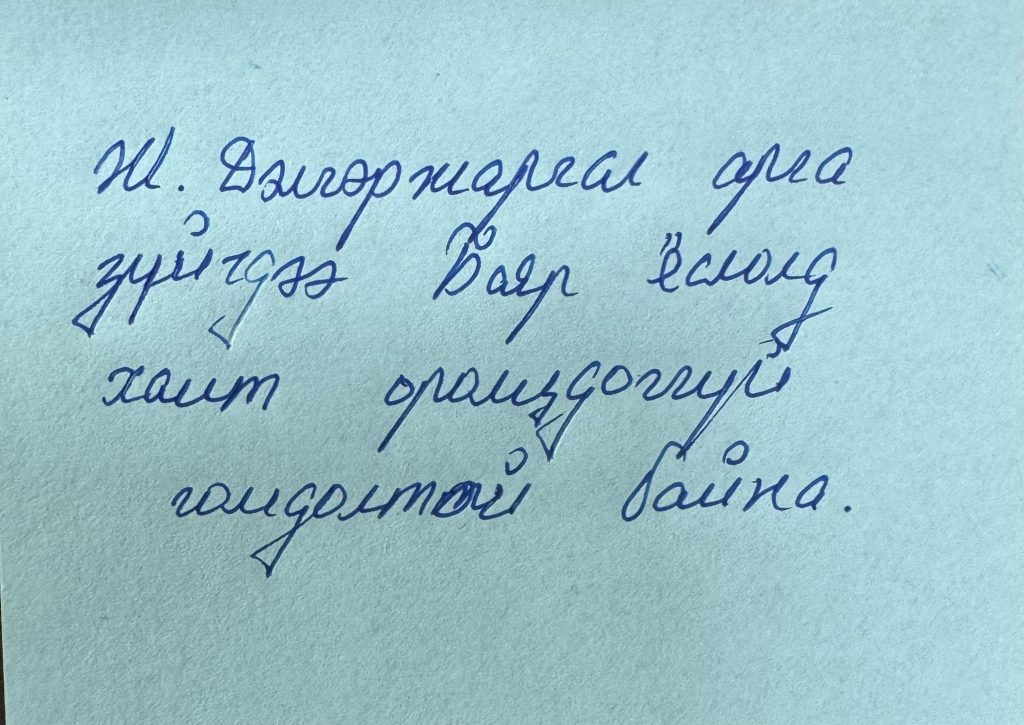 Ж. Дэлгэржаргал арга
зүйгдээ Баяр ёслолд
хамт оролцдоггүй
гомдолтой байна.